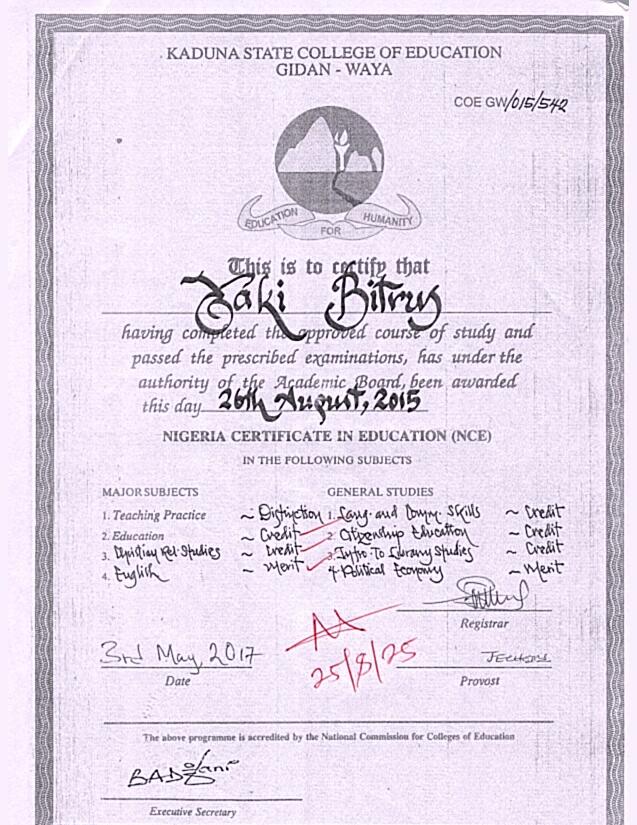 KADUNA STATE COLLEGE OF EDUCATION
GIDAN - WAYA
COE GW/015/542
EDUCATION FOR HUMANITY
This is to certify that
Yaki Bitrus
having completed the approved course of study and
passed the prescribed examinations, has under the
authority of the Academic Board, been awarded
this day 26th August, 2015
NIGERIA CERTIFICATE IN EDUCATION (NCE)
IN THE FOLLOWING SUBJECTS
MAJOR SUBJECTS GENERAL STUDIES
1. Teaching Practice ~ Distinction 1. Lang. and Comm. Skills ~ Credit
2. Education ~ Credit 2. Citizenship Education ~ Credit
3. Christian Rel. Studies ~ Credit 3. Intro. To Library Studies ~ Credit
4. English ~ Merit 4. Political Economy ~ Merit
Registrar
3rd May, 2017
25/8/25
Date Provost
The above programme is accredited by the National Commission for Colleges of Education
Executive Secretary